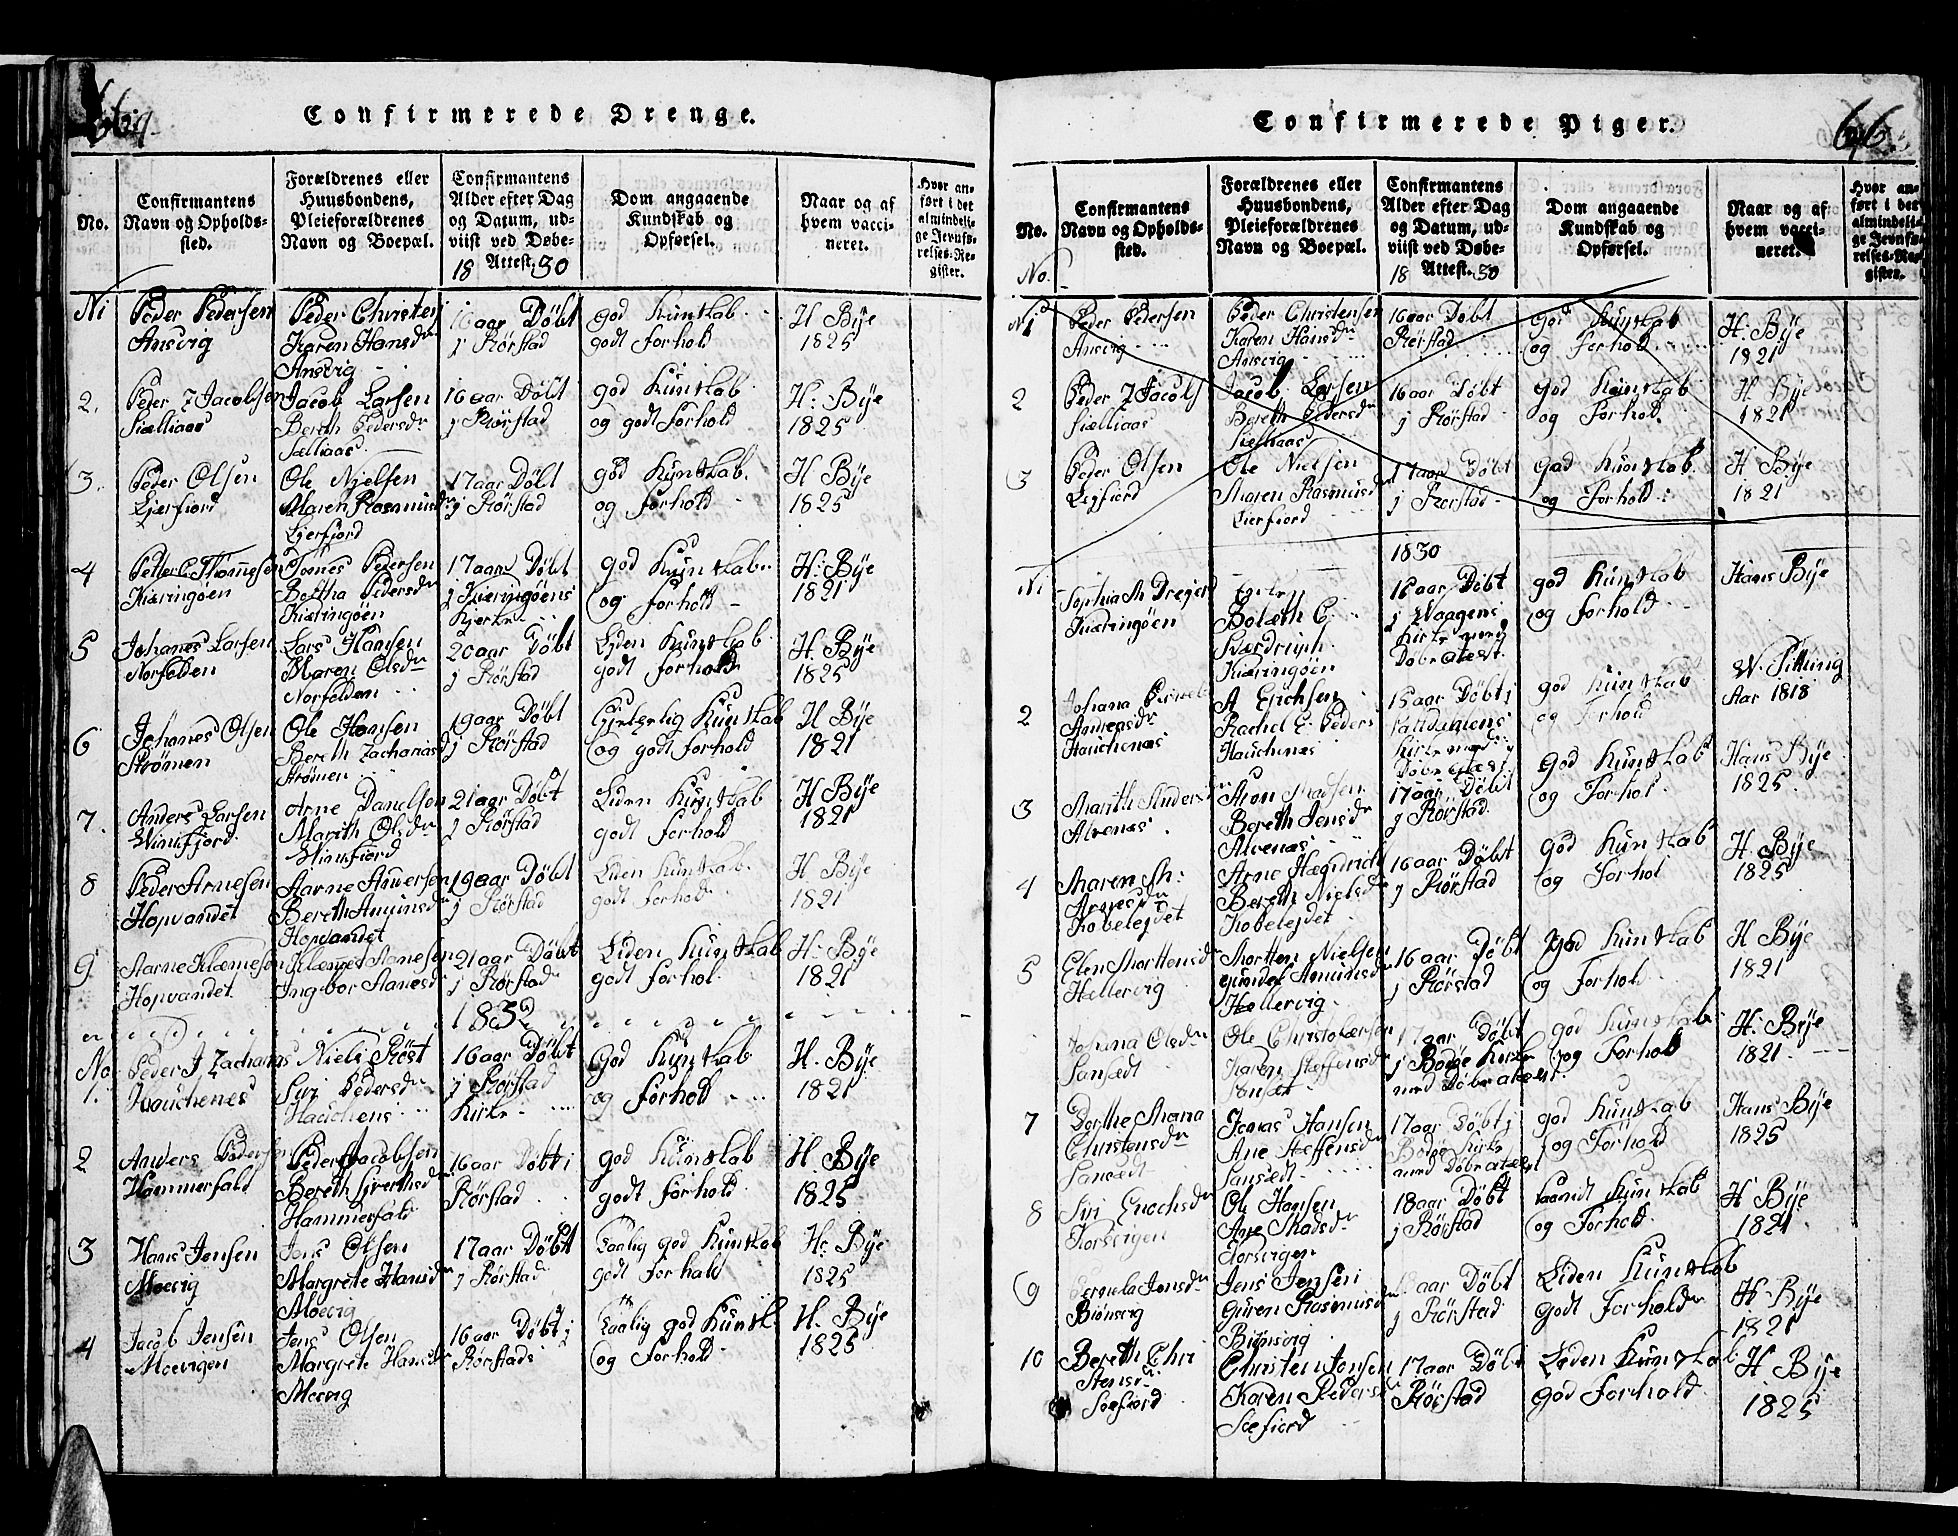 Confirmerede Drenge.
No.
Confirmantens
Navn og Opholds-
sted.
Forældrenes eller
Huusbondens,
Pleieforældrenes
Navn og Boepæl.
Confirmantens
Alder efter Dag
og Datum, ud-
viist ved Døbe-
Attest.
18 30
Dom angaaende
Kundskab og
Opførsel.
Naar og af
hvem vacci-
neret.
Hvor an-
ført i det
almindeli-
ge Jevnfø-
relses-Re-
gister.
Peder Pedersen
Ansvig
Peder Christen
Karen Hansdr
Ansvig
16 aar Døbt
j Rørstad
god Kunskab
godt forhold
H Bÿe
1825
2.
Peder Z Jacobsen
Siælliaas
Jacob Larsen
Bereth Pedersdr
Sælliaas
16 aar Døbt
j Rørstad
god Kunskab
og godt Forhold
H: Bÿe
1825
3.
Peder Olsen
Ljerfiord
Ole Njelsen
Maren Rasmusdr
Ljerfjord
17 aar Døbt
j Rørstad
god Kunskab.
og forhold
H Bÿe
1825
4
Petter C Thommesen
Kiæringøen
Tomes Pedersen
Bertha Pedersdr
Kiæringøen
17 aar Døbt
j Kieringøens
Kjerke
god Kunskab
og forhold
H: Bÿe
1821
5
Johanes Larsen
Norfolden
Lars Hansen
Maren Olsdr
Norfolden
20 aar Døbt
j Rørstad
Liden Kunskab
godt forhold
H. Bÿe
1825
6
Johanes Olsen
Strømen
Ole Hansen
Bereth Zachariasd
Strømen
19 aar Døbt
j Rørstad
Kunskab
og godt forhold
H Bÿe
1821
7.
Anders Larsen
Vinnfjord
Arne Danelsen
Marith Olsdr
Vinnfiord
21 aar Døbt
j Rørstad
Liden Kunskab
godt forhold
H Bÿe
1821
8
Peder Arnesen
Hopvandet
Aarne Siversen
Bereth Amunsd
Hopvandet
19 aar Døbt
j Rørstad
Liden Kunskab
godt forhold
H Bÿe
1821
9
Aarne Klæmesen
Hopvandet
Klæmet Aanesen
Ingebor Hanesd
21 aar Døbt
j Rørstad
Liden Kunskab
godt forhol
H. Bÿe
1821
No
1.
Peder J Zacharias
Hauchenes
Niels Røst
Siri Pedersdr
Hauchens
16 aar Døbt
j Rørstad
Kirke
God Kunskab
og Forhold
H. Bÿe
1821
2
Anders Pedersen
Hammerfald
Peder Jacobsen
Bereth Siverthsd
Hammerfald
16 aar Døbt i
Rørstad
god Kunskab
godt forhold
H. Bÿe
1825
3
Hans Jensen
Moevig
Jens Olsen
Margrete Hansdr
Moevig
17 aar Døbt
j Rørstad
Taalig god Kunskab
godt forhold
H: Bÿe
1825
4
Jacob Jensen
Moevigen
Jens Olsen
Margrete Hansdr
Moevig
16 aar Døbt j
Rørstad
Taalig god Kunsk
og Forhold
H. Bÿe
1825
Confirmerede Piger.
66.
No.
Confirmantens
Navn og Opholds-
sted.
Forældrenes eller
Huusbondens,
Pleieforældrenes
Navn og Boepæl.
Confirmantens
Alder efter Dag
og Datum, ud-
viist ved Døbe-
Attest.
18 30
Dom angaaende
Kundskab og
Opførsel.
Naar og af
hvem vacci-
neret.
Hvor an-
ført i det
almindeli-
ge Jevnfø-
relses-Re-
gister.
No.
N 1
Peder Pedersen
Ansvig
Peder Christensen
Karen Hansdr
Ansvig
16 aar Døbt
Rørstad
God Kunskab
og Forhold
H: Bÿe
1821
2
Peder Z Jacobs
Siælliaas
Jacob Larsen
Bereth Pedersdr
Siælliaas
16 aar Døbt
j Rørstad
God Kunskab
og Forhold.
H. Bÿe
1821
3
Peder Olsen
Leyfiord
Ole Nielsen
Maren Rasmusdr
Lierfiord
17 aar Døbt
j Rørstad
God Kunskab
og Forhold
H Bÿe
1821
1830
Kiæringøen
Kiæringøn
16 aar Døbt
j Vaagens
Kirke med
Døbe atest.
god Kunskab
og forhold
Hans Bÿe
2
Johana
Andreasdr
Hauchenæs
A Erichsen
Rachel E. Peders
Hauchnæs
15 aar Døbt i
Kirke med
Døbe atest
god Kunskab
og forhold
Aar 1818
3
Marith Andersdr
Alvenæs
Aron Madsen
Bereth Jensdr
Alvenæs
17 aar Døbt
j Rørstad
God Kunskab
og Forhol
Hans Bÿe
1825
4
Maren M:
Arnesdr
Kobelejdet
Arne Hendrich
Bereth Nielsd
Kobelejdet
16 aar Døbt
j Rørstad
God Kunskab
og Forhol
H. Bÿe
1825
5
Elen Mortensdr
Hællervig
Mortten Nielsen
Gundel Amundsdr
Hællervig
16 aar Døbt
j Rørstad
God Kunskab
og Forhold
H Bÿe
1821
Johana Olsdr
Sansædt
Ole Christofersen
Karen Steffensdr
Sansædt
17 aar Døbt
j Bodøe Kirke
med Døbe atæst
god Kunskab
og Forhold
H. Bÿe
1821
7
Dorthe Maria
Christensdr
Sansædt
Jonas Hansen
Ane Steffensdr
Sansædt
17 aar Døbt i
Bodøe Kirke
med Døbe atæst
god Kunskab
og Forhold
Hans Bÿe
1825
8
Siri Enochsdr
Korsvigen
Ole Hansen
Ane Madsdr
Korsvigen
18 aar Døbt
j Rørstad
Kunskab
og Forhold
H Bÿe
1821
9
Pernela Jensdr
Biønsvig
Jens Jensen
Guren Rasmusd
Biønsvig
aar Døbt
j Rørstad
Liden Kunskab
godt forhold
H. Bÿe
1821
10
Bereth Chri
stensdr
Soefiord
Christen Jonsen
Karen Pedersd
Soefiord
17 aar Døbt
Rørstad
Leden Kunskab
god Forhold
H. Bÿe
1825